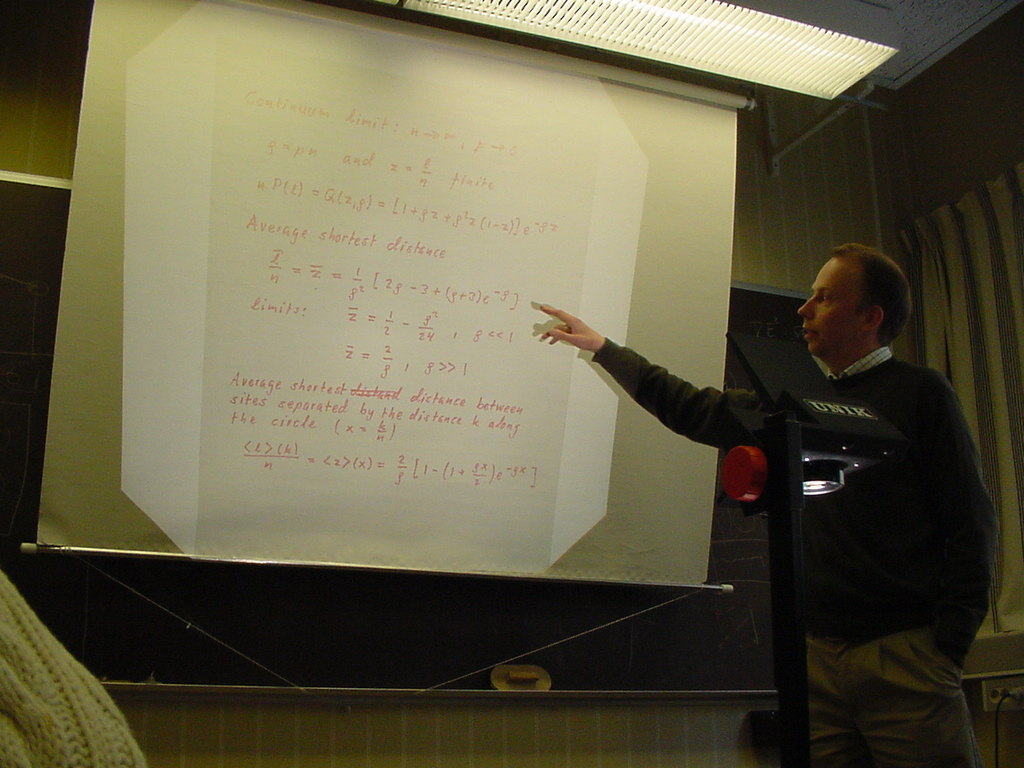 Continuum limit: n → ∞, p → 0
ρ = pn and z = ℓ/n finite
n P(ℓ) = Q(z,ρ) = [1 + ρz + ρ²z(1-z)] e^-ρz
Average shortest distance
ℓ̅/n = z̅ = 1/ρ² [2ρ - 3 + (ρ+3)e^-ρ]
limits: z̅ = 1/2 - ρ²/24, ρ << 1
z̅ = 2/ρ, ρ >> 1
Average shortest distance between
sites separated by the distance k along
the circle (x = k/n)
<ℓ>(k)/n = <z>(x) = 2/ρ [1 - (1 + ρx/2)e^-ρx]
UNIK